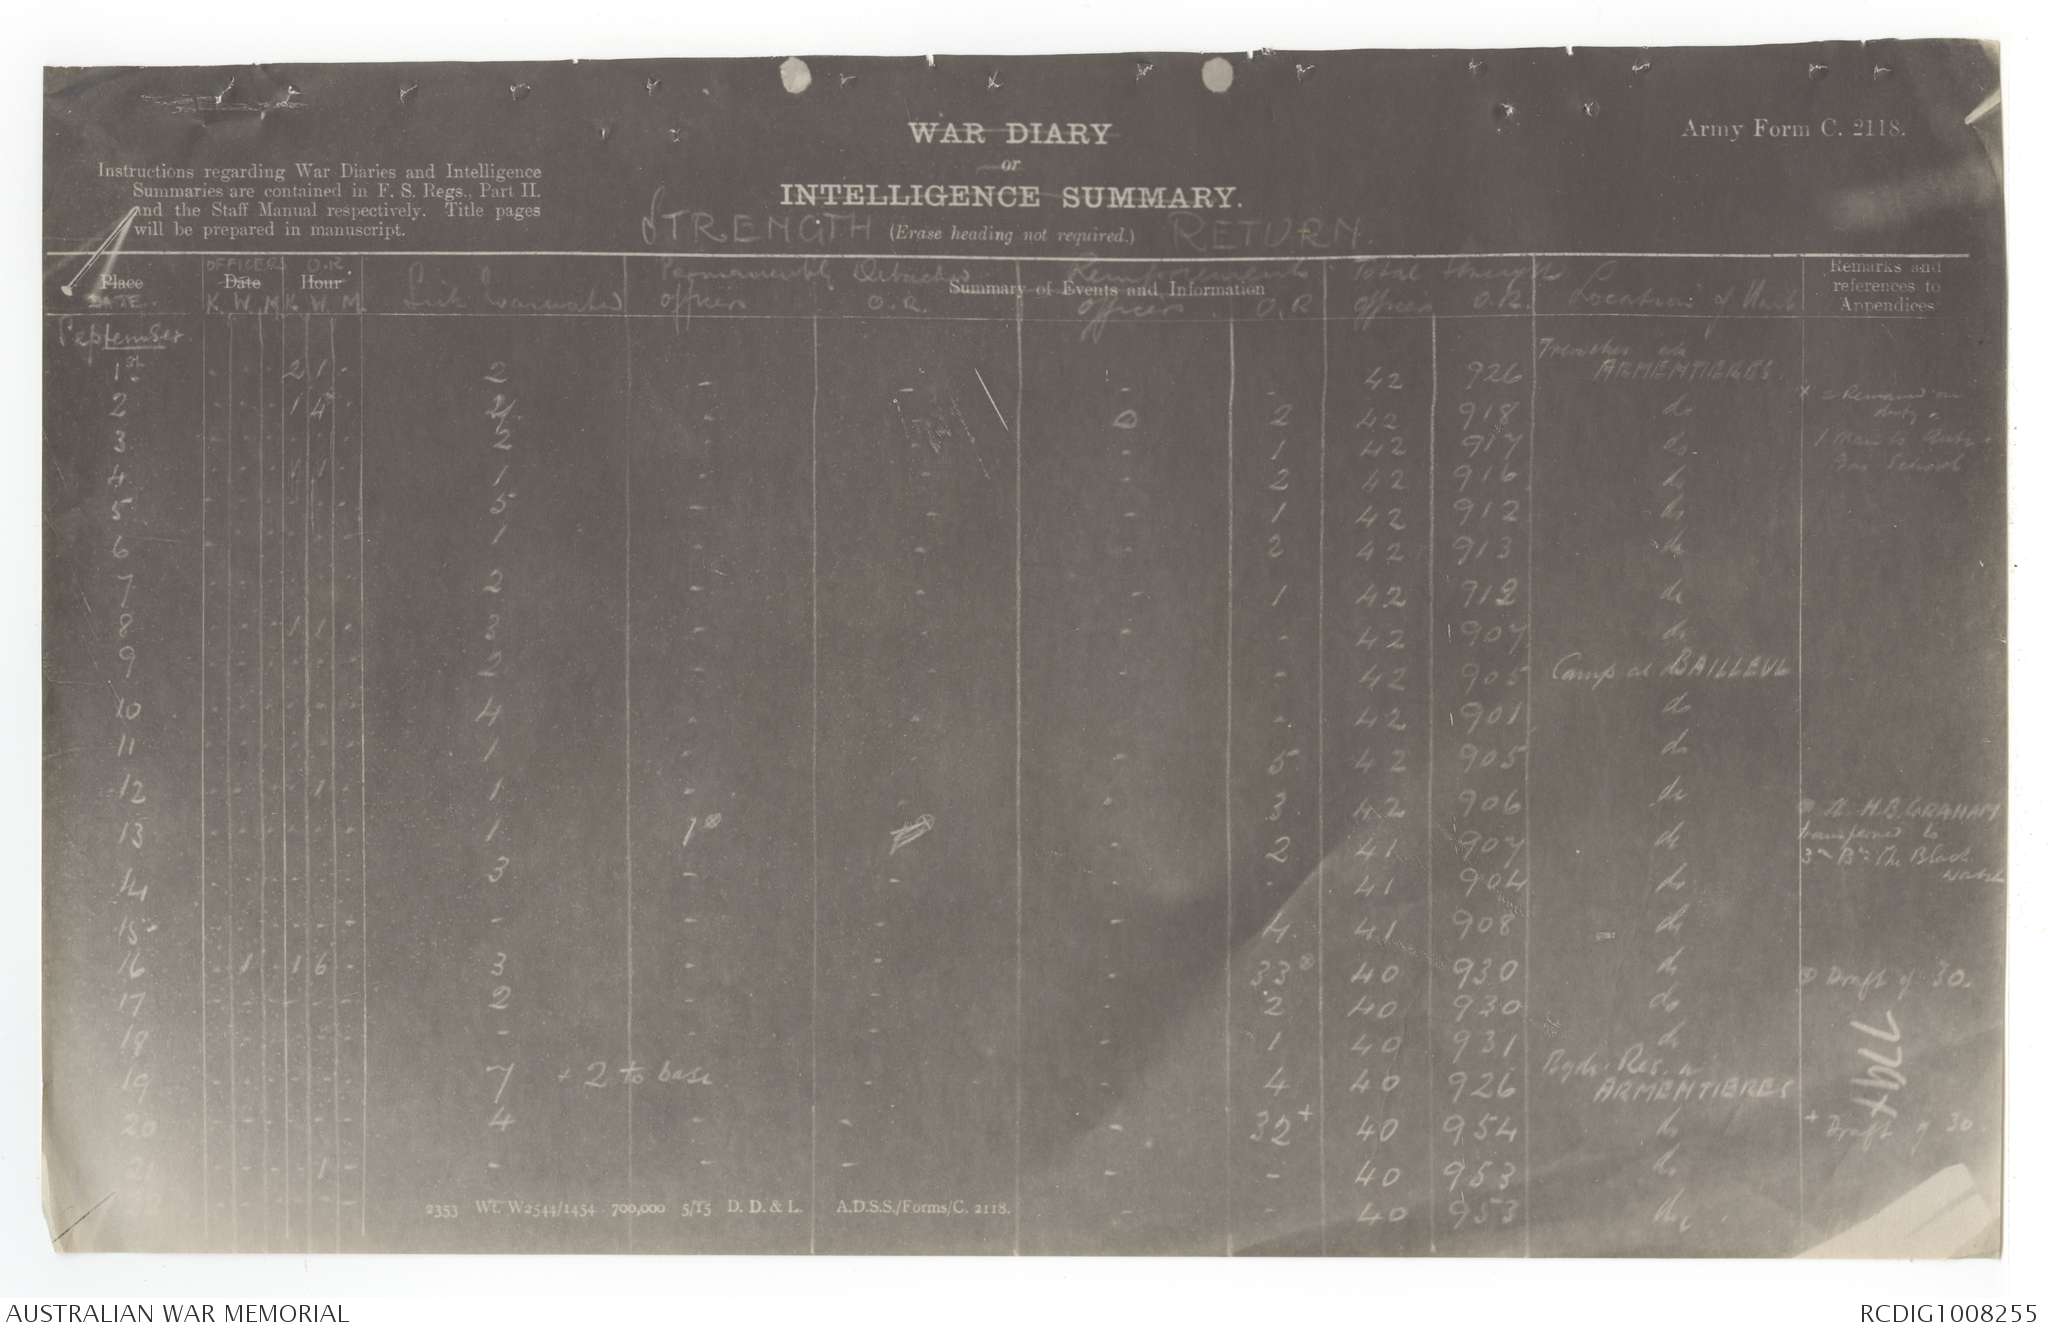 WAR DIARY
or
INTELLIGENCE SUMMARY.
(Erase heading not required.)
STRENGTH RETURN.
Army Form C. 2118.
Instructions regarding War Diaries and Intelligence
Summaries are contained in F. S. Regs., Part II.
and the Staff Manual respectively. Title pages
will be prepared in manuscript.
Place Date Hour Summary of Events and Information Remarks and references to Appendices
DATE. OFFICERS O.R. Sick Evacuated Permanently Detached Reinforcements Total Strength Location of Unit
K. W. M. K. W. M. officers O.R. officers O.R. officers O.R.
September.
1st - - - 2 1 - 2 - - - - 42 926 Trenches ARMENTIERES.
2 - - - 1 4 - 2 - 0 2 42 918 do x = Remained on duty.
3 2 - - 1 42 917 do 1 Man to
4 1 1 1 - - - 2 42 916 do Gas School
5 5 - - - 1 42 912 do
6 1 - - - 2 42 913 do
7 2 - - - 1 42 912 do
8 1 1 - 2 - - - - 42 907 do
9 2 - - - - 42 905 Camp at BAILLEUL
10 4 - - - - 42 901 do
11 1 - - - 5 42 905 do
12 1 1 - - - 3 42 906 do
13 1 1 2 41 907 do H.B. GRAHAM transferred to 3rd Bn The Black Watch
14 3 - - - 41 904 do
15 - - - - 4 41 908 do
16 - 1 - 1 6 - 3 - - - 33 40 930 do Draft of 30.
17 2 - - - 2 40 930 do
18 - - - - 1 40 931 do
19 7 + 2 to base - - 4 40 926 Bgde. Res. ARMENTIERES
20 4 - - - 32+ 40 954 do + Draft of 30.
21 1 - - - - - - 40 953 do
22 - - 40 953 do
7794
2353 Wt. W2544/1454 700,000 5/15 D. D. & L. A.D.S.S./Forms/C. 2118.
AUSTRALIAN WAR MEMORIAL
RCDIG1008255